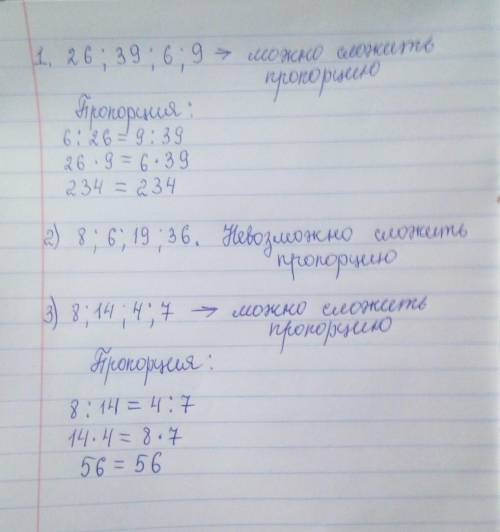 1. 26; 39; 6; 9 → можно сложить
пропорцию
Пропорция:
6 : 26 = 9 : 39
26 · 9 = 6 · 39
234 = 234
2) 8; 6; 19; 36. Невозможно сложить
пропорцию
3) 8; 14; 4; 7 → можно сложить
пропорцию
Пропорция:
8 : 14 = 4 : 7
14 · 4 = 8 · 7
56 = 56